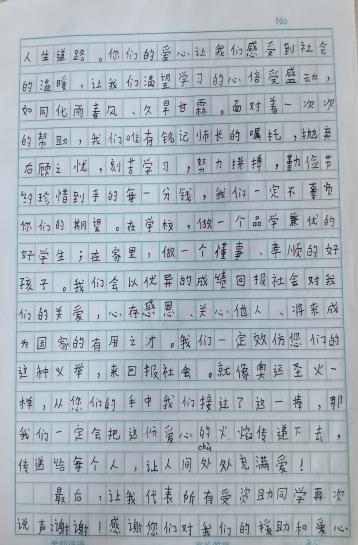 No
人生道路。你们的爱心让我们感受到社会
的温暖，让我们渴望学习的心倍受感动，
如同化雨春风、久旱甘霖。面对着一次次
的帮助，我们唯有铭记师长的嘱托，抛弃
后顾之忧，刻苦学习，努力拼搏，勤俭节
约珍惜到手的每一分钱，我们一定不辜负
你们的期望。在学校，做一个品学兼优的
好学生；在家里，做一个懂事、孝顺的好
孩子。我们会以优异的成绩回报社会对我
们的关爱，心存感恩、关心他人、将来成
为国家的有用之才。我们一定效仿您们的
这种义举，来回报社会。就像奥运圣火一
样，从您们的手中我们接过了这一棒，那
我们一定会把这份爱心的火焰传递下去，
chù
传递给每个人，让人间处处充满爱！
最后，让我代表所有受资助同学再次
说声谢谢！感谢您们对我们的援助和爱心